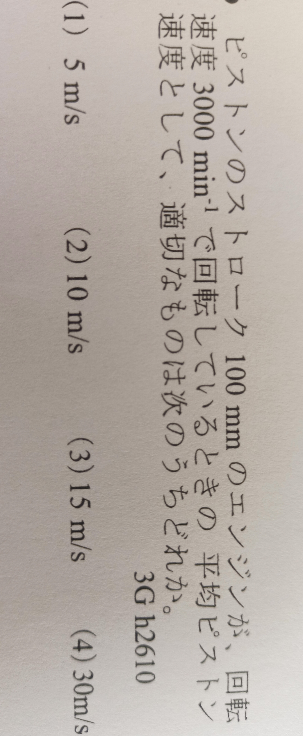 ピストンのストローク 100 mm のエンジンが、回転
速度 3000 min⁻¹ で回転しているときの 平均ピストン
速度として、適切なものは次のうちどれか。
3G h2610
(1) 5 m/s (2) 10 m/s (3) 15 m/s (4) 30m/s